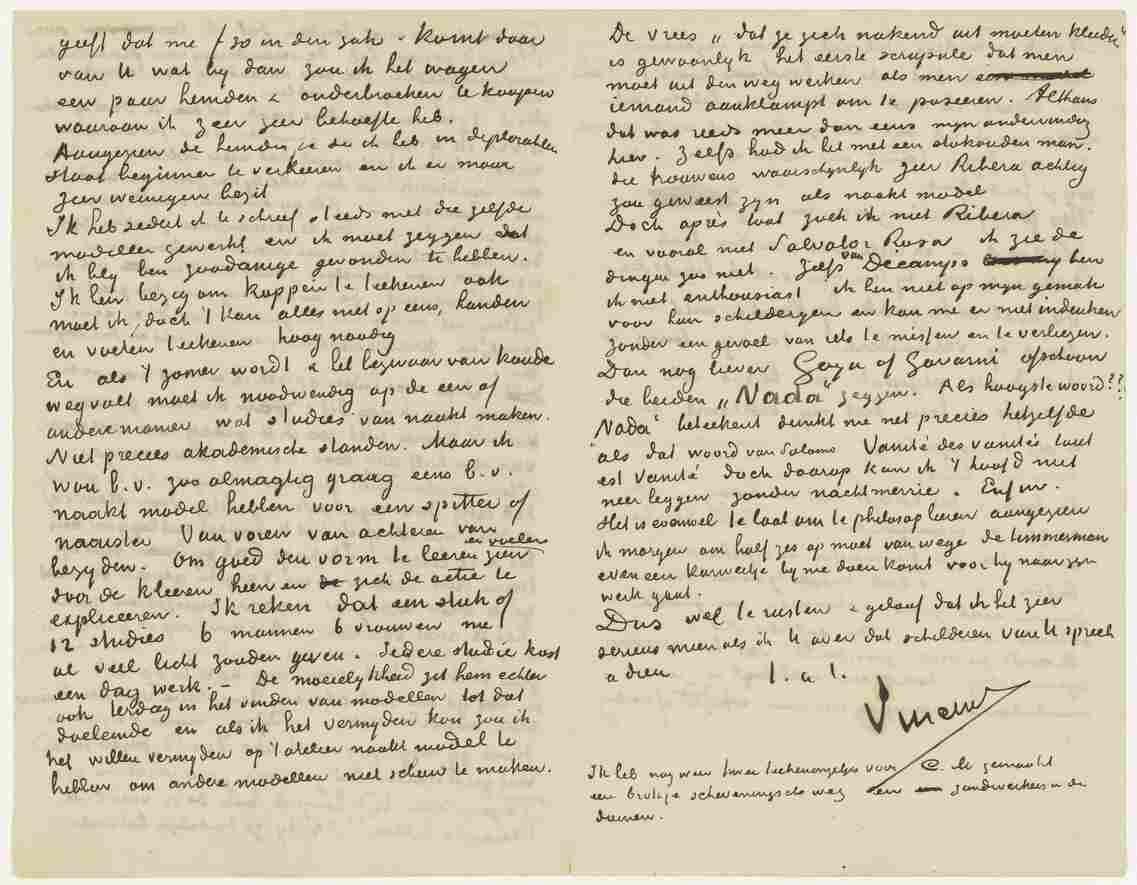 geeft dat me f 30 in den zak. Komt daar
van U wat by dan zou ik het wagen
een paar hemden & onderbroeken te koopen
waaraan ik zeer zeer behoefte heb.
Aangezien de hemden die ik heb in deplorablen
staat beginnen te verkeeren en ik er maar
zeer weinigen bezit
Ik heb sedert ik te schreef steeds met die zelfde
modellen gewerkt en ik moet zeggen dat
ik bly ben zoodanige gevonden te hebben.
Ik ben bezig om koppen te teekenen ook
moet ik, doch 't kan alles niet op eens, handen
en voeten teekenen hoog noodig
En als 't zomer wordt & het bezwaar van koude
wegvalt moet ik noodwendig op de een of
andere manier wat studies van naakt maken.
Niet precies akademische standen. Maar ik
wou b.v. zoo almagtig graag eens b.v.
naakt model hebben voor een spitter of
naaister Van voren van achteren van
bezyden. Om goed den vorm te leeren zien en voelen
door de kleeren heen en de zich de actie te
expliceeren. Ik reken dat een stuk of
12 studies 6 mannen 6 vrouwen me
al veel licht zouden geven. Iedere studie kost
een dag werk. – De moeielykheid zit hem echter
ook terdeg in het vinden van modellen tot dat
doeleinde en als ik het vermyden kon zou ik
het willen vermyden op 't atelier naakt model te
hebben om andere modellen niet schuw te maken.
De vrees „dat ze zich nakend uit moeten kleeden"
is gewoonlyk het eerste scrupule dat men
moet uit den weg werken als men
iemand aanklampt om te poseeren. Althans
dat was reeds meer dan eens myn ondervinding
hier. Zelfs had ik het met een stokouden man.
die trouwens waarschynlyk zeer Ribera achtig
zou geweest zyn als naakt model
Doch après tout zoek ik niet Ribera
en vooral niet Salvator Rosa ik zie de
dingen zoo niet. Zelfs van Decamps ben
ik niet enthousiast ik ben niet op myn gemak
voor hun schilderyen en kan me er niet indenken
zonder een gevoel van iets te missen en te verliezen.
Dan nog liever Goya of Gavarni ofschoon
die beiden „Nada" zeggen. Als hoogste woord??
„Nada" beteekent dunkt me net precies hetzelfde
als dat woord van Salomo Vanité des vanités tout
est vanité doch daarop kan ik 't hoofd niet
neer leggen zonder nachtmerrie. Enfin.
Het is evenwel te laat om te philosopheeren aangezien
ik morgen om half zes op moet van wege de timmerman
even een karweitje by me doen komt voor hy naar zyn
werk gaat.
Dus wel te rusten & geloof dat ik het zeer
serieus meen als ik U over dat schilderen van U spreek
adieu t. à t.
Vincent
Ik heb nog weer twee teekeningetjes voor C.M. gemaakt
een brokje scheveningsche weg en zandwerkers in de
duinen.